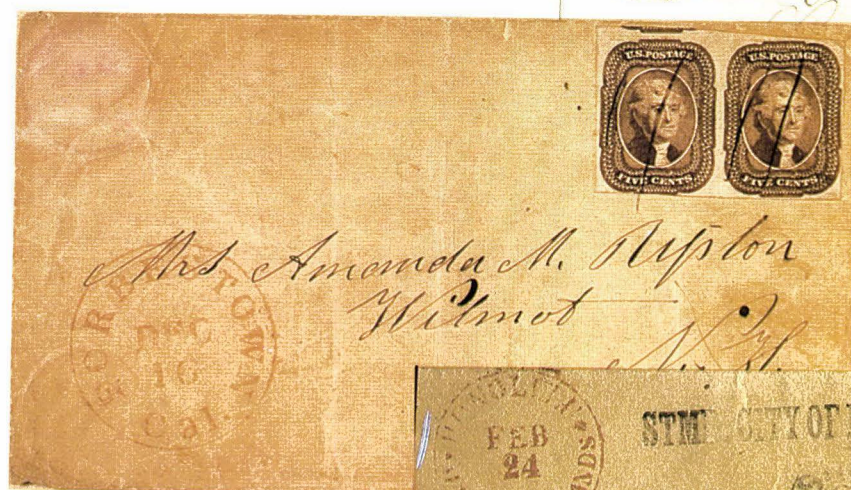 U.S.POSTAGE
FIVE CENTS
U.S.POSTAGE
FIVE CENTS
Mrs Amanda M.
Wilmot
N. H.
DEC
10
Cal.
HONOLULU
FEB
24
STMR. CITY OF